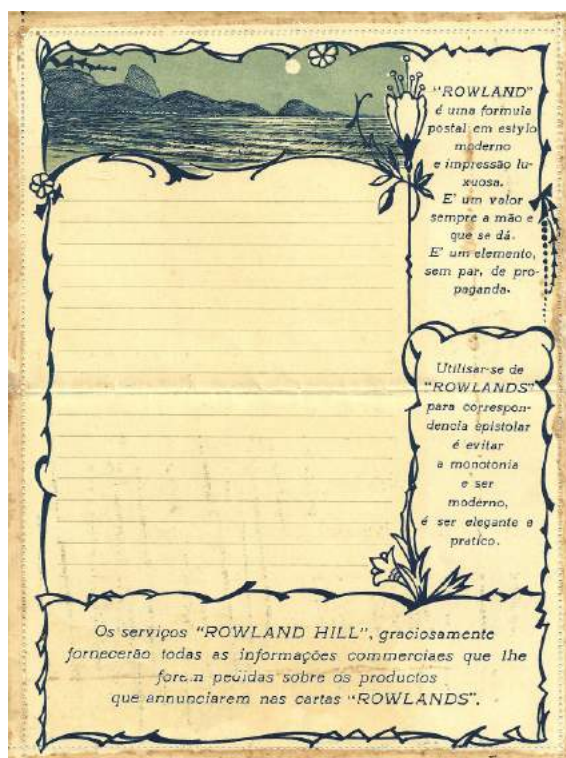 "ROWLAND"
é uma formula
postal em estylo
moderno
e impressão lu-
xuosa.
E' um valor
sempre a mão e
que se dá.
E' um elemento,
sem par, de pro-
paganda.
Utilisar-se de
"ROWLANDS"
para correspon-
dencia epistolar
é evitar
a monotonia
e ser
moderno,
é ser elegante e
pratico.
Os serviços "ROWLAND HILL", graciosamente
fornecerão todas as informações commerciaes que lhe
forem pedidas sobre os productos
que annunciarem nas cartas "ROWLANDS".